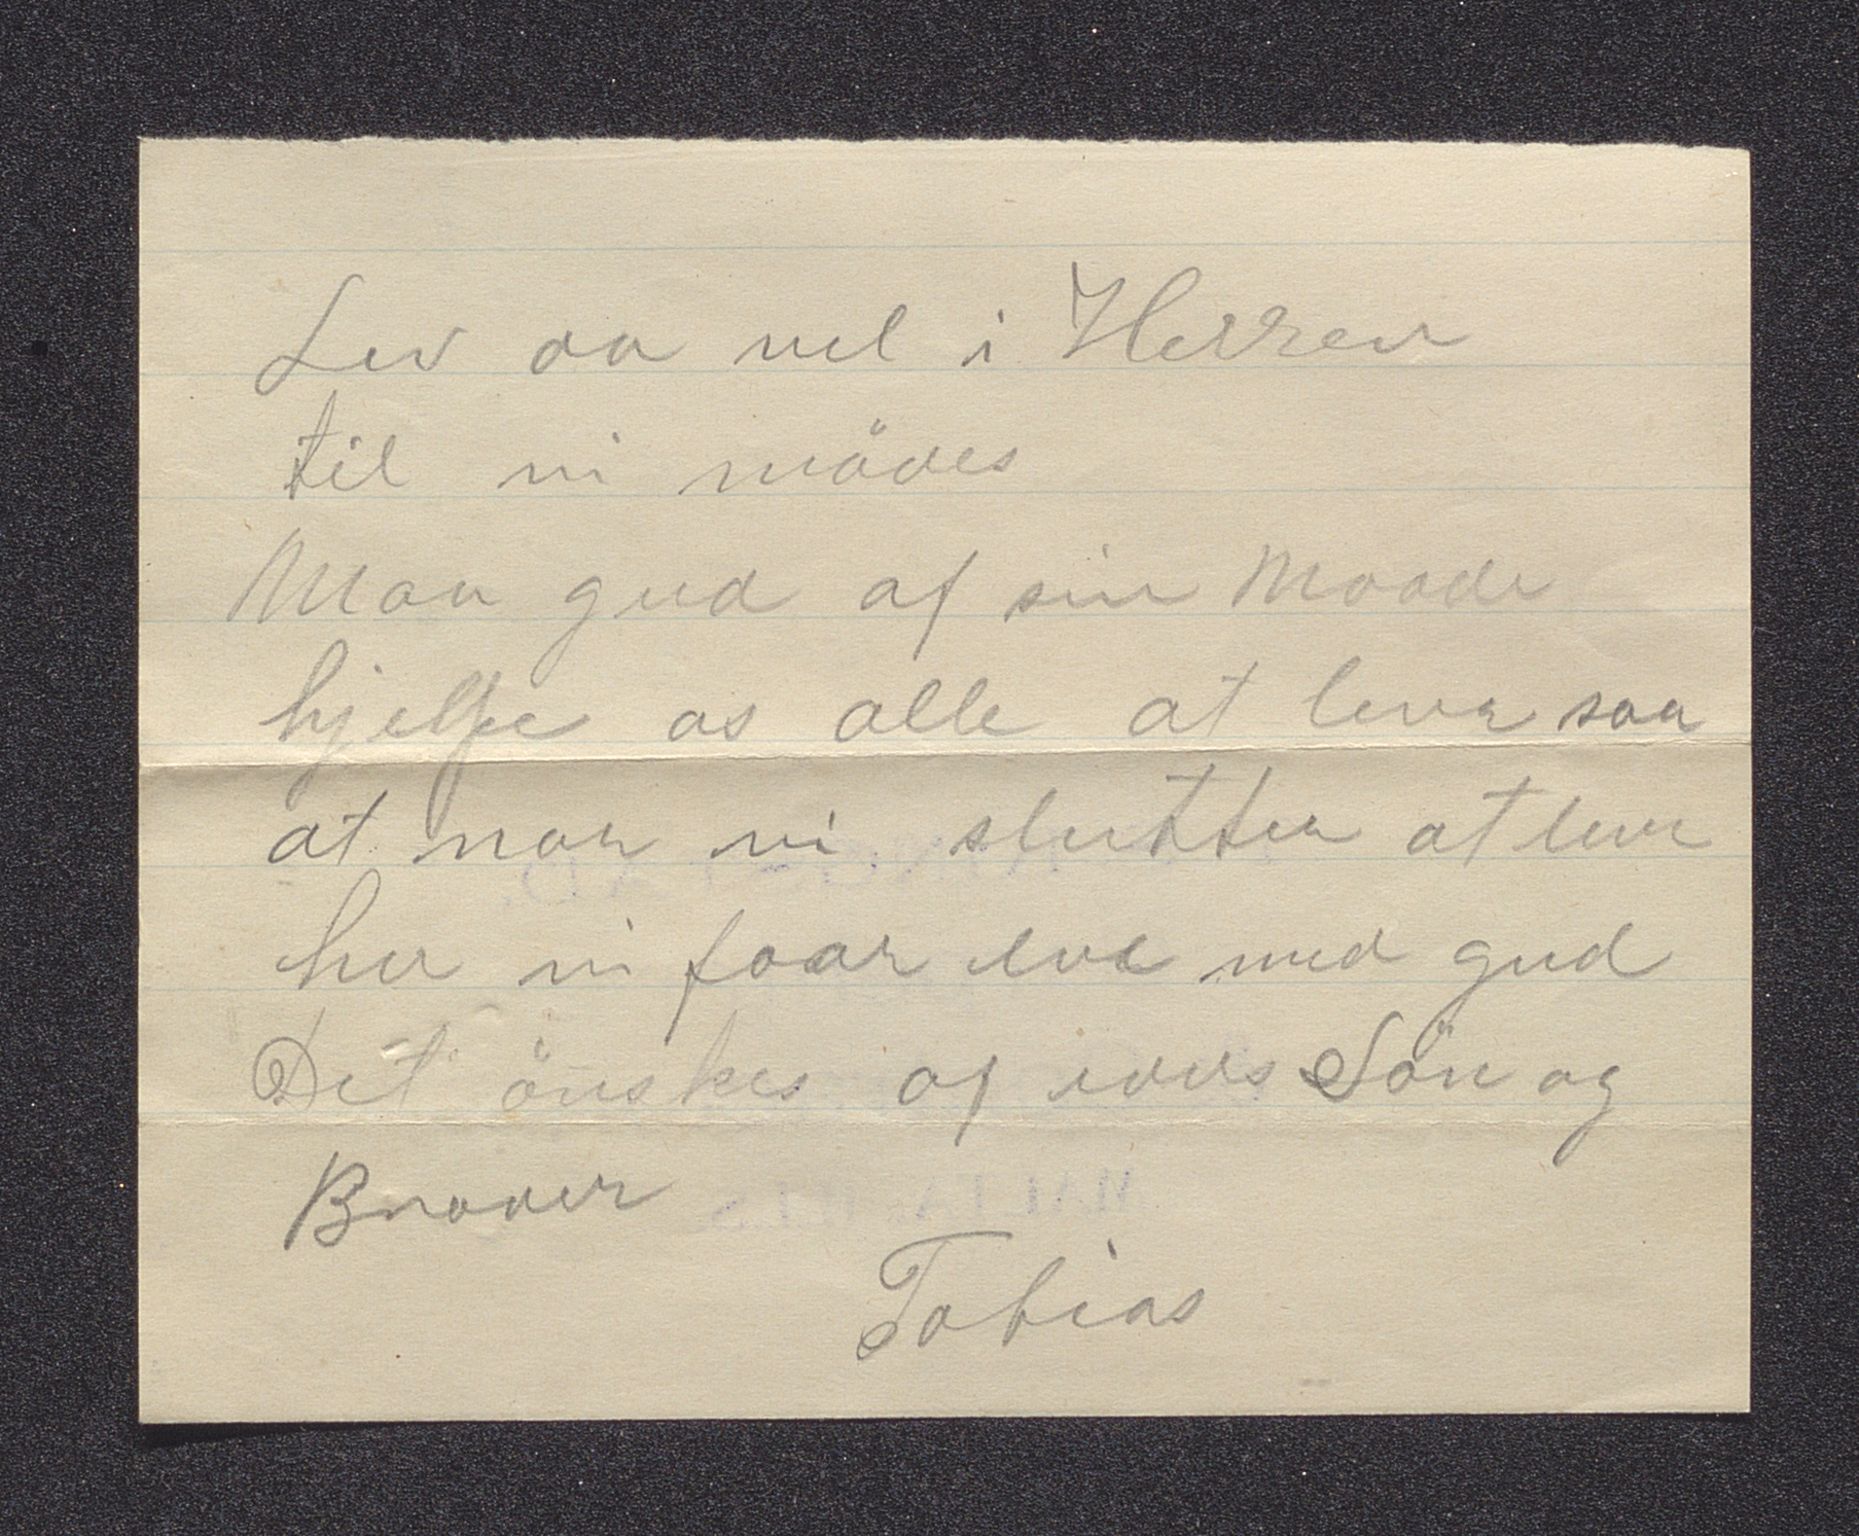 Lev da vel i Herren
til vi mödes
Maa gud af sin Naade
hjelpe os alle at leve saa
at naar vi slutter at leve
her vi faar leve med gud
Det önskes af eders Sön og
Broder
Tobias